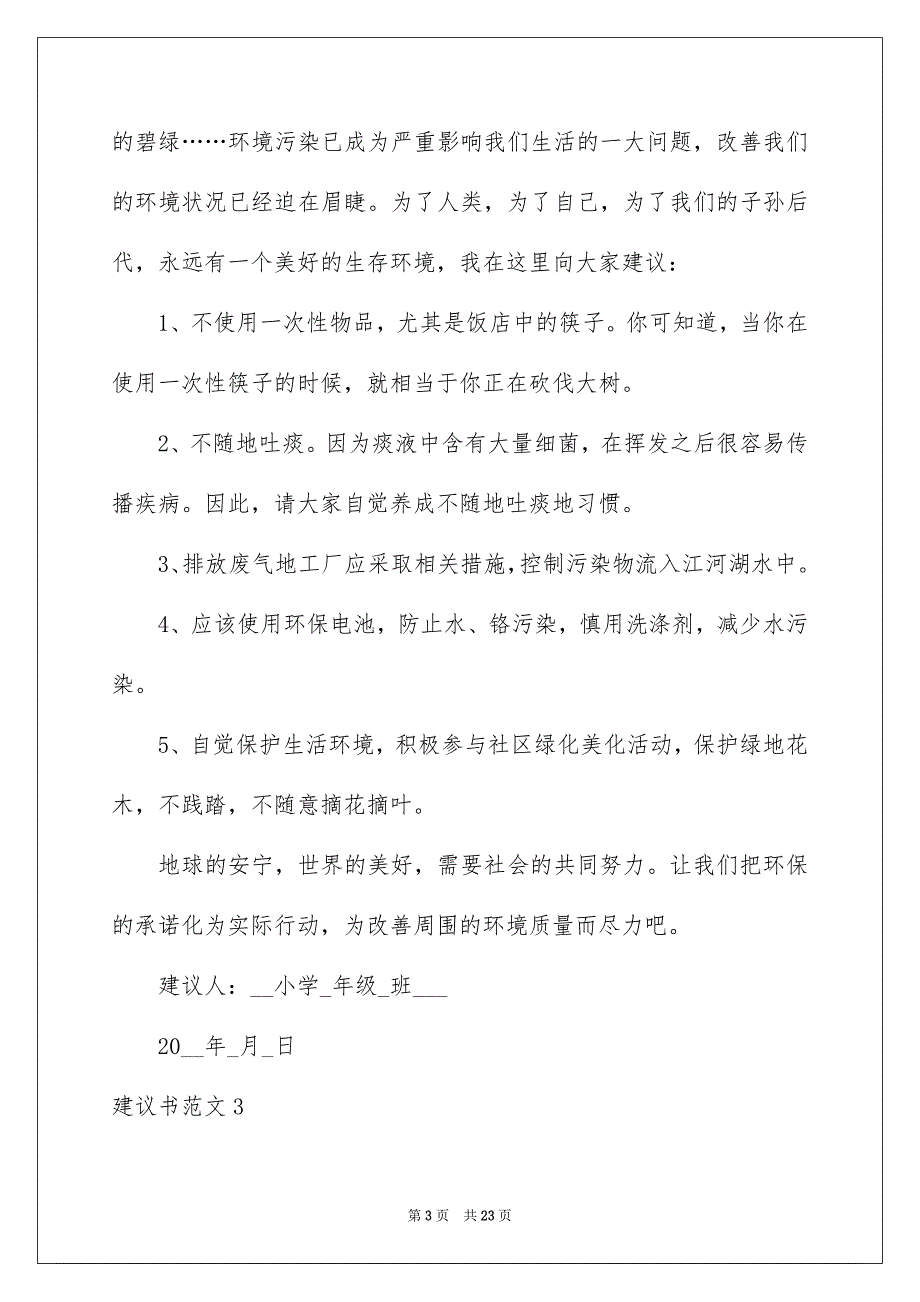 的碧绿……环境污染已成为严重影响我们生活的一大问题，改善我们
的环境状况已经迫在眉睫。为了人类，为了自己，为了我们的子孙后
代，永远有一个美好的生存环境，我在这里向大家建议：
1、不使用一次性物品，尤其是饭店中的筷子。你可知道，当你在
使用一次性筷子的时候，就相当于你正在砍伐大树。
2、不随地吐痰。因为痰液中含有大量细菌，在挥发之后很容易传
播疾病。因此，请大家自觉养成不随地吐痰地习惯。
3、排放废气地工厂应采取相关措施，控制污染物流入江河湖水中。
4、应该使用环保电池，防止水、铬污染，慎用洗涤剂，减少水污
染。
5、自觉保护生活环境，积极参与社区绿化美化活动，保护绿地花
木，不践踏，不随意摘花摘叶。
地球的安宁，世界的美好，需要社会的共同努力。让我们把环保
的承诺化为实际行动，为改善周围的环境质量而尽力吧。
建议人：__小学_年级_班___
20__年_月_日
建议书范文 3
第 3 页 共 23 页